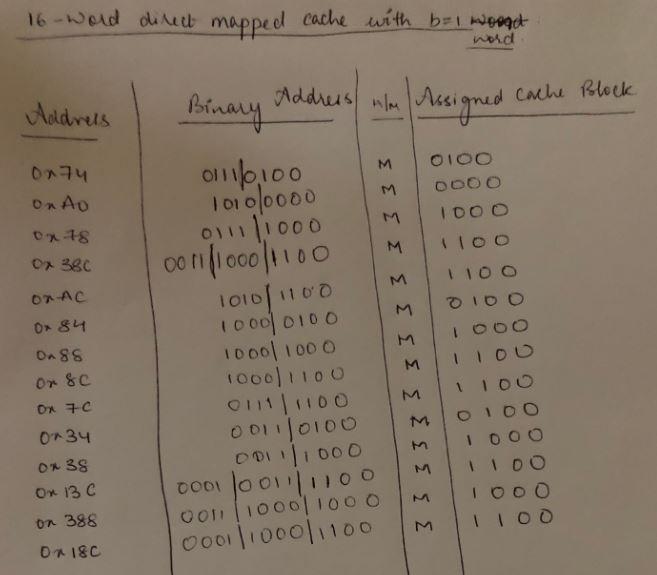 16-Word direct mapped cache with b=1
word.
Address Binary Address H/M Assigned Cache Block
0x74 0111|0100 M 0100
0xA0 1010|0000 M 0000
0x78 0111|1000 M 1000
0x38C 0011|1000|1100 M 1100
0xAC 1010|1100 M 1100
0x84 1000|0100 M 0100
0x88 1000|1000 M 1000
0x8C 1000|1100 M 1100
0x7C 0111|1100 M 1100
0x34 0011|0100 M 0100
0x38 0011|1000 M 1000
0x13C 0001|0011|1100 M 1100
0x388 0011|1000|1000 M 1000
0x18C 0001|1000|1100 M 1100